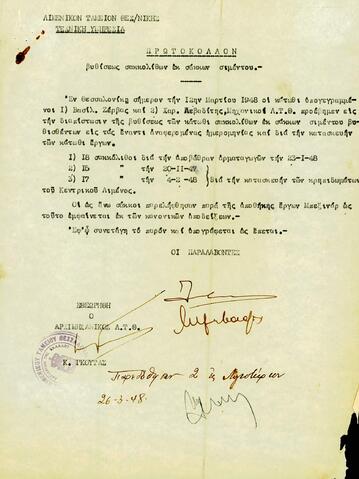 ΛΙΜΕΝΙΚΟΝ ΤΑΜΕΙΟΝ ΘΕΣ/ΝΙΚΗΣ
ΤΕΧΝΙΚΗ ΥΠΗΡΕΣΙΑ
ΠΡΩΤΟΚΟΛΛΟΝ
βυθίσεως σακκολίθων ἐκ σάκκων σιμέντου.-
Ἐν Θεσσαλονίκῃ σήμερον τήν 12ην Μαρτίου 1948 οἱ κάτωθι ὑπογεγραμμέ-
νοι 1) Βασίλ. Σάρβας καί 2) Χαρ. Λεβαδίτης, Μηχανικοί Λ.Τ.Θ. προέβημεν εἰς
τήν διαπίστωσιν τῆς βυθίσεως τῶν κάτωθι σακκολίθων ἐκ σάκκων σιμέντου βυ-
θισθέντων εἰς τάς ἔναντι ἀναφερομένας ἡμερομηνίας καί διά τήν κατασκευήν
τῶν κάτωθι ἔργων.
1) 18 σακκόλιθοι διά τήν ὑποβάθραν ἁρματαγωγῶν τήν 23-1-48
2) 15 " τήν 20-11-47
3) 17 " τήν 4-2-48 διά τήν κατασκευήν τῶν κρηπιδωμάτων
τοῦ Κεντρικοῦ Λιμένος.
Οἱ ὡς ἄνω σάκκοι παρελήφθησαν παρά τῆς ἀποθήκης ἔργων Μπεξινάρ ὡς
τοῦτο ἐμφαίνεται ἐκ τῶν κανονικῶν ἀποδείξεων.-
Ἐφ' ᾧ συνετάγη τό παρόν καί ὑπογράφεται ὡς ἕπεται.-
ΟΙ ΠΑΡΑΛΑΒΟΝΤΕΣ
ΕΘΕΩΡΗΘΗ
Ο
ΑΡΧΙΜΗΧΑΝΙΚΟΣ Λ.Τ.Θ.
Κ. ΓΚΟΥΤΑΣ
26-3-48.